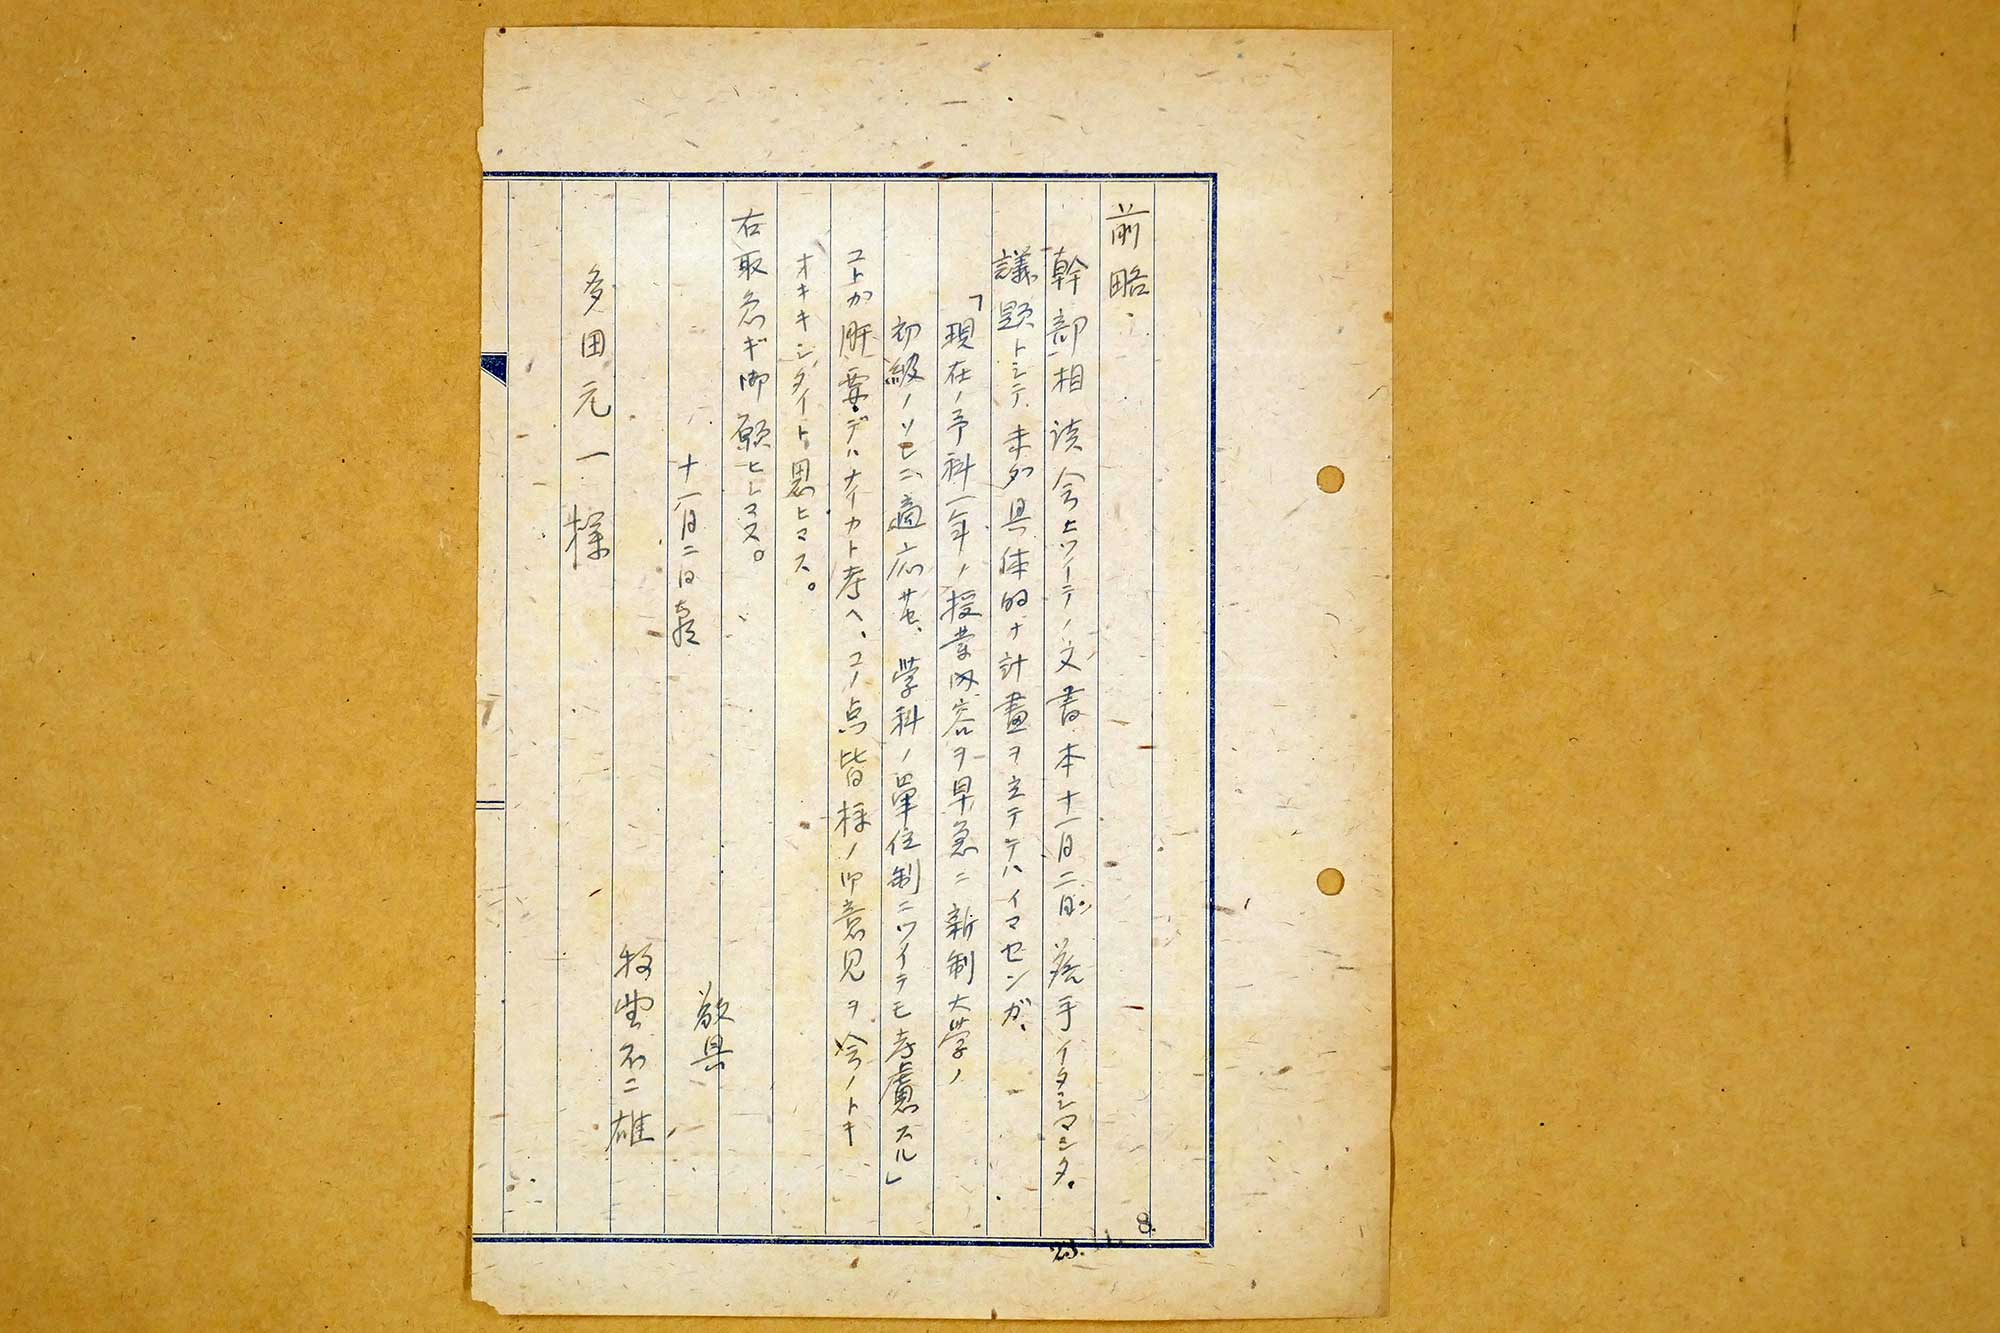 前略、
幹部相談会ニツイテノ文書、本十一月二日、落手イタシマシタ。
議題トシテ、未ダ具体的ナ計畫ヲ立テテハイマセンガ、
「現在ノ予科一年ノ授業内容ヲ早急ニ新制大學ノ
初級ノソレニ適応サセ、學科ノ單位制ニツイテモ考慮スル」
コトガ肝要デハナイカト考ヘ、コノ点皆様ノ御意見ヲ会ノトキ
オキキシタイト思ヒマス。
右取急ギ御願ヒシマス。
敬具
十一月二日
牧 不二雄
多田元一様
23.11.8.